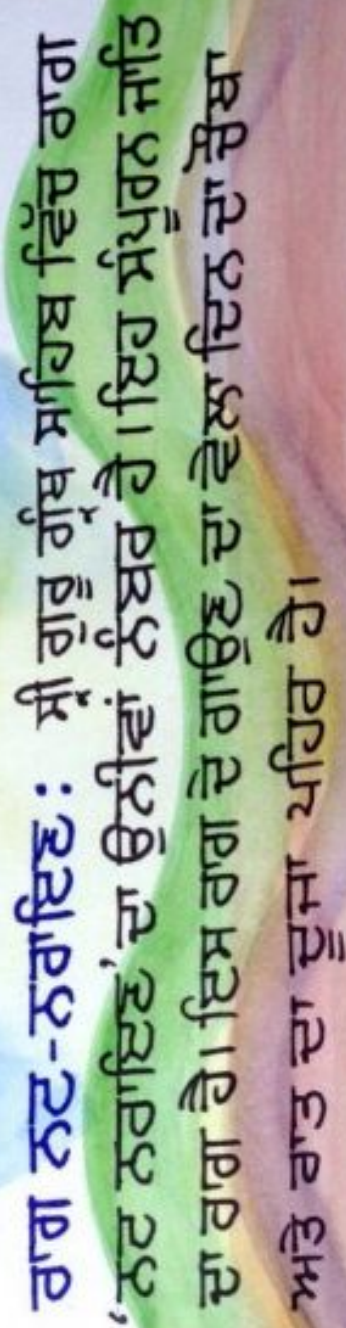 ਰਾਗ ਨਟ-ਨਰਾਇਣ : ਸ੍ਰੀ ਗੁਰੂ ਗ੍ਰੰਥ ਸਾਹਿਬ ਵਿੱਚ ਰਾਗ
‘ਨਟ ਨਰਾਇਣ’ ਦਾ ਉਨੀਵਾਂ ਨੰਬਰ ਹੈ। ਇਹ ਸੰਪੂਰਨ ਜਾਤਿ
ਦਾ ਰਾਗ ਹੈ। ਇਸ ਰਾਗ ਦੇ ਗਾਉਣ ਦਾ ਵੇਲਾ ਦਿਨ ਦਾ ਚੌਥਾ
ਅਤੇ ਰਾਤ ਦਾ ਦੂਜਾ ਪਹਿਰ ਹੈ।